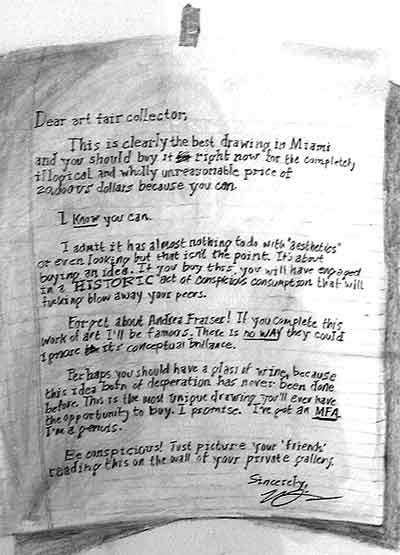 Dear art fair collector,
This is clearly the best drawing in Miami
and you should buy it right now for the completely
illogical and wholly unreasonable price of
20,000 US dollars because you can.
I Know you can.
I admit it has almost nothing to do with "aesthetics"
or even looking but that isn't the point. It's about
buying an idea. If you buy this, you will have engaged
in a HISTORIC act of conspicious consumption that will
fucking blow away your peers.
Forget about Andrea Fraser! If you complete this
work of art I'll be famous. There is no WAY they could
ignore it's conceptual brillance.
Perhaps you should have a glass of wine, because
this idea born of desperation has never been done
before. This is the most unique drawing you'll ever have
the opportunity to buy. I promise. I've got an MFA.
I'm a genius.
Be conspicious! Just picture your 'friends'
reading this on the wall of your private gallery.
Sincerely,